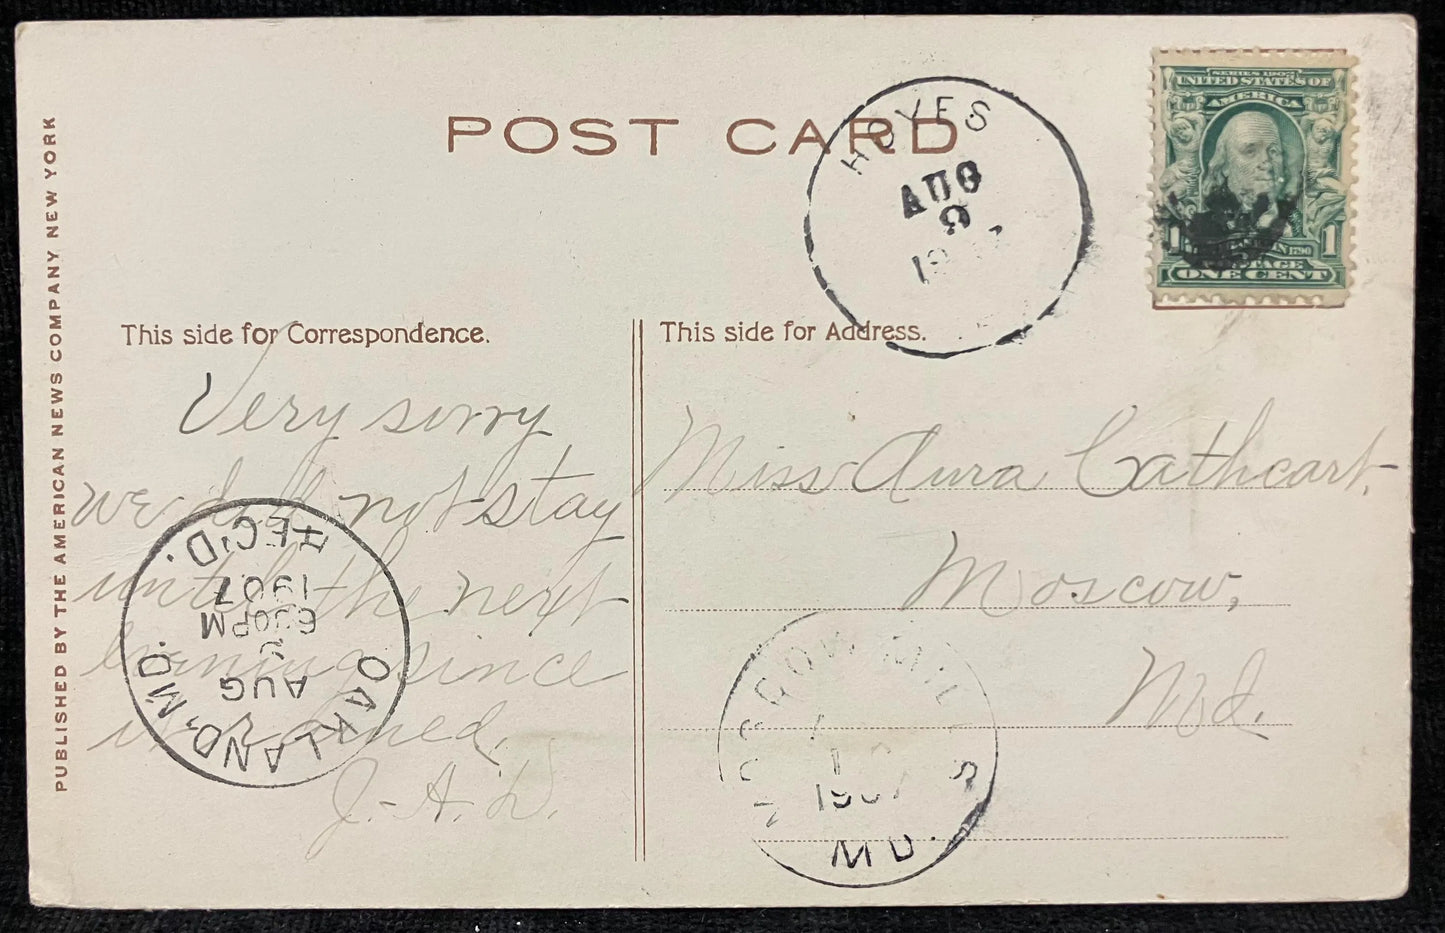 POST CARD
SERIES 1902
UNITED STATES OF
AMERICA
1 1
POSTAGE
ONE CENT
HOYES
AUG
9
19
PUBLISHED BY THE AMERICAN NEWS COMPANY NEW YORK
This side for Correspondence.
Very sorry
we did not stay
until the next
evening since
it rained.
J. A. D.
REC'D.
1907
630PM
9
AUG
OAKLAND, MD.
This side for Address.
Miss Aura Cathcart,
Moscow,
Md.
1907
MD.